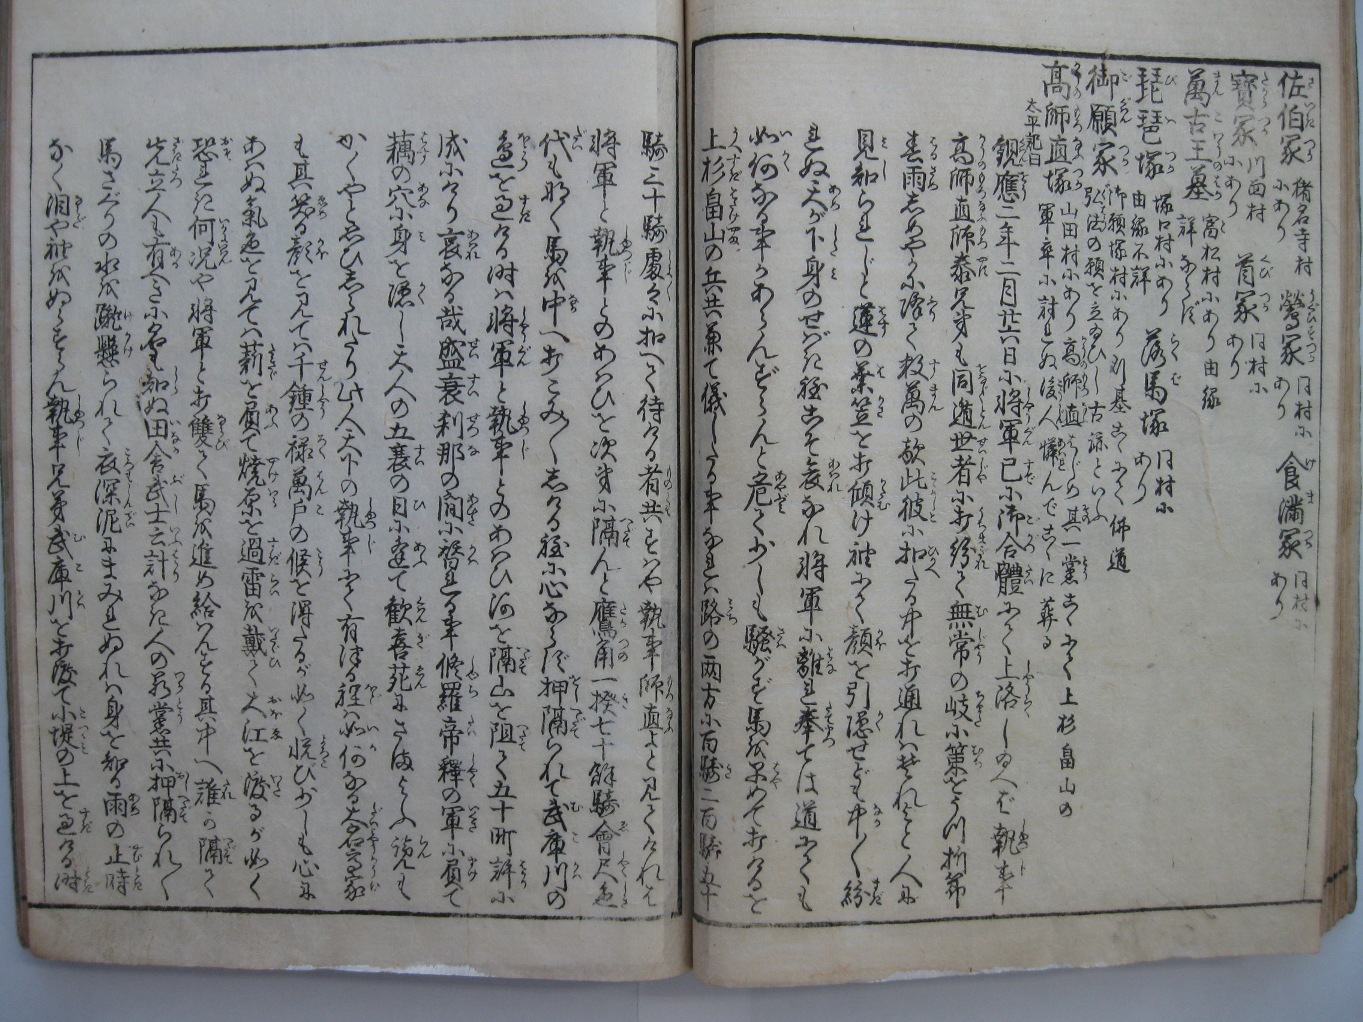 佐伯冢 猪名寺村にあり 鶯冢 同村にあり 食満冢 同村にあり
寶冢 川面村にあり 首冢 同村にあり
萬古王墓 富松村にあり由縁詳ならず
琵琶塚 塚口村にあり由縁不詳 落馬塚 同村にあり
御願冢 御願塚村にあり行基こゝにて佛道弘法の願を立給ひし古跡といふ
高師直塚 山田村にあり高師直はじめ其一黨こゝにて上杉畠山の軍卒に討れぬ後人憐んでこゝに葬る
太平記曰
觀應二年二月廿六日に将軍已に御合體にて上洛し給へば執事
高師直師泰兄弟も同遁世者に打紛て無常の岐に策をうつ折節
春雨しめやかに降て数萬の敵此彼に扣たる中を打通れハそれと人に
見知られじと蓮の葉笠を打傾け袖にて顔を引隠せども中〳〵紛
れぬ天が下身のせばき程こそ哀なれ将軍に離れ奉ては道にても
如何なる事かあらんずらんと危て少しも騒がず馬を早めて打けるを
上杉畠山の兵共兼て儀したる事なれハ路の両方に百騎二百騎五十
騎三十騎處々に扣へて待ける者共すハや執事師直よと見てけれは
将軍と執事とのあハひを次第に隔んと鷹角一揆七十餘騎會尺色
代も無く馬を中へ打こみ〳〵しける程に心ならず押隔られて武庫川の
邊を過ける時ハ将軍と執事とのあハひ河を隔山を阻て五十町許に
成にけり哀なる哉盛衰刹那の間に替れる事修羅帝釋の軍に負て
藕の穴に身を隠し天人の五衰の日に逢て歓喜苑にさまよふ覧も
かくやと思ひしられたり此人天下の執事にて有つる程ハ如何なる大名高家
も其咲る顔を見てハ千鍾の禄萬戸の候を得たるが如く悦び少しも心に
あハぬ氣色を見てハ薪を負て焼原を過雷を戴て大江を渡るが如く
恐れき何況や将軍と打雙て馬を進め給ハんずる其中へ誰か隔て
先立人も有べきに名も知ぬ田舎武士云計なき人の若黨共に押隔られ〳〵
馬ざくりの水を蹴懸られて夜深泥にまみれぬれハ身を知る雨の止時
なく泪や袖をぬらすらん執事兄弟武庫川を打渡て小堤の上を過ける時